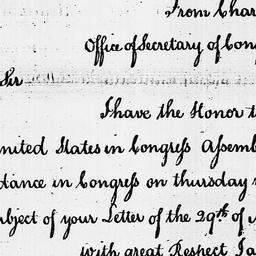 From Char
Office of Secretary of Con
Sir
I have the Honor t
nited States in Congreſs Aſsemb
dance in Congreſs on thursday
bject of your Letter of the 29th of
with great Respect I a